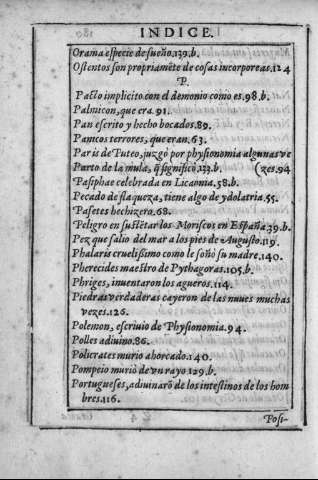 INDICE.
Orama especie de sueño.139.b.
Ostentos son propriamẽte de cosas incorporeas.124
P.
Pacto implicito con el demonio como es.98.b.
Palmicon, que era.91.
Pan escrito y hecho bocados.89.
Panicos terrores, que eran.63.
Paris de Puteo, juzgó por physionomia algunas ve
Parto de la mula, q̃ significò.133.b. (zes.94
Pasiphae celebrada en Licaonia.58.b.
Pecado de flaqueza, tiene algo de ydolatria.55.
Pasetes hechizero.68.
Peligro en sustẽtar los Moriscos en España.39.b.
Pez que salio del mar a los pies de Augusto.119.
Phalaris cruelissimo como le soñó su madre.140.
Pherecides maestro de Pythagoras.105.b.
Phriges, inuentaron los agueros.114.
Piedras verdaderas cayeron de las nuues muchas
vezes.126.
Polemon, escriuio de Physionomia.94.
Polles adiuino.86.
Policrates murio ahorcado.140.
Pompeio muriò de vn rayo 129.b.
Portugueses, adiuinarõ de los intestinos de los hom
bres.116.
Posi-